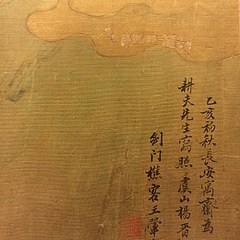 乙亥初秋長安寓齋為
耕夫先生寫照虞山楊晋
劍门樵客王翬